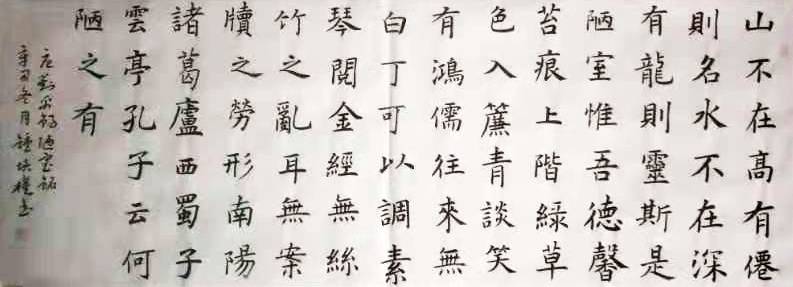 山不在髙有僊
則名水不在深
有龍則靈斯是
陋室惟吾德馨
苔痕上階綠草
色入簾青談笑
有鴻儒往來無
白丁可以調素
琴閱金經無絲
竹之亂耳無案
牘之勞形南陽
諸葛廬西蜀子
雲亭孔子云何
陋之有
唐劉禹錫陋室銘
辛丑冬月